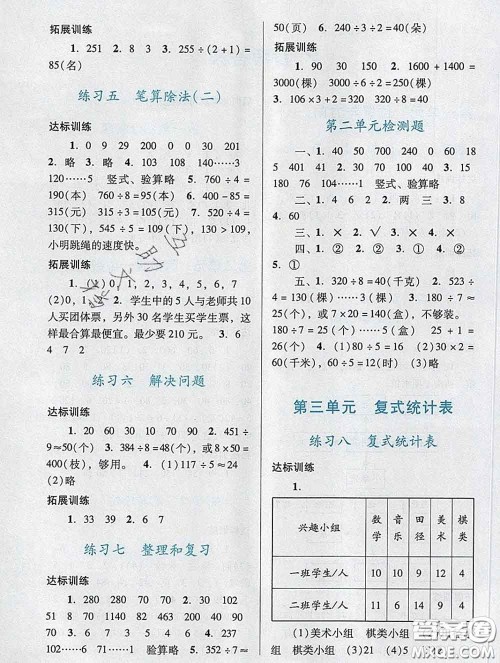 拓展训练
1. 251 2. 8 3 3. 255÷(2+1)=
85(名)
练习五 笔算除法(二)
达标训练
1. 0 9 29 200 0 0 30 201
2. 略 3. 略 4. 103 108 140……5
120……5 竖式、验算略 5. 760÷4=
190(本) 760÷8=95(本) 6. 400-85=
315(元) 315÷3=105(元) 7. 520÷4=
130(下) 545÷5=109(下), 130>109,
小明跳绳的速度快。
拓展训练
1. (1)0, 1, 2, 3, 4, 5, 6, 7
(2)0, 1 2. 学生中的5人与老师共10
人买团体票, 另外30名学生买学生票, 这
样最合算最便宜。最少要210元。 3. 6
4 7 2
练习六 解决问题
达标训练
1. 20 60 30 10 90 70 2. 451÷
9≈50(个) 3. 384÷8=48(个)或8×50=
400(枝), 够用。 4. (1)117÷5≈24(个)
(2)略
拓展训练
1. 33 39 2. 6 7
练习七 整理和复习
达标训练
1. 30 780 80 0 130 110 2. 52
51 8 70 1120 83 402 200 90
8 71 0 3. 290 46 4. 略 5. 237
102……6 131……6 验算略 6. 352÷7≈
50(页) 7. 240÷3÷2=40(朵)
拓展训练
1. 90 30 15 2. 1600+1400=
3000(棵) 3000÷2÷6=250(棵)
3. 106×3+2=320 320÷8=40
第二单元检测题
一、1. 40 50 700 240 0 60 15
401 41 2. 20 30 70 50 3. 17 15
180 76 104……4 竖式、验算略
二、1. 0 4 2. 四 2. 两 三 3. 8
4. 60
三、1. √ 2. × 3. × 4. ×
四、1. ② 2. ② 3. ① 4. ②
5. ①
五、1. 270÷9=30(個) 2. 523÷
4≈130(棵) 3. 略 4. (1)180÷9=20(盒)
180÷7=25(盒)……5(盒) 25+1=
26(盒) (2)略 5. (1)略 (2)90÷30=
60(千米), 60÷5=12(时) (3)略
第三单元 复式统计表
练习八 复式统计表
达标训练
1.
兴趣小组 数学 音乐 田径 美术 棋类
一班学生/人 10 10 9 12 4
二班学生/人 10 9 11 9 4
(1)美术小组 棋类小组 (3)21 (4)5